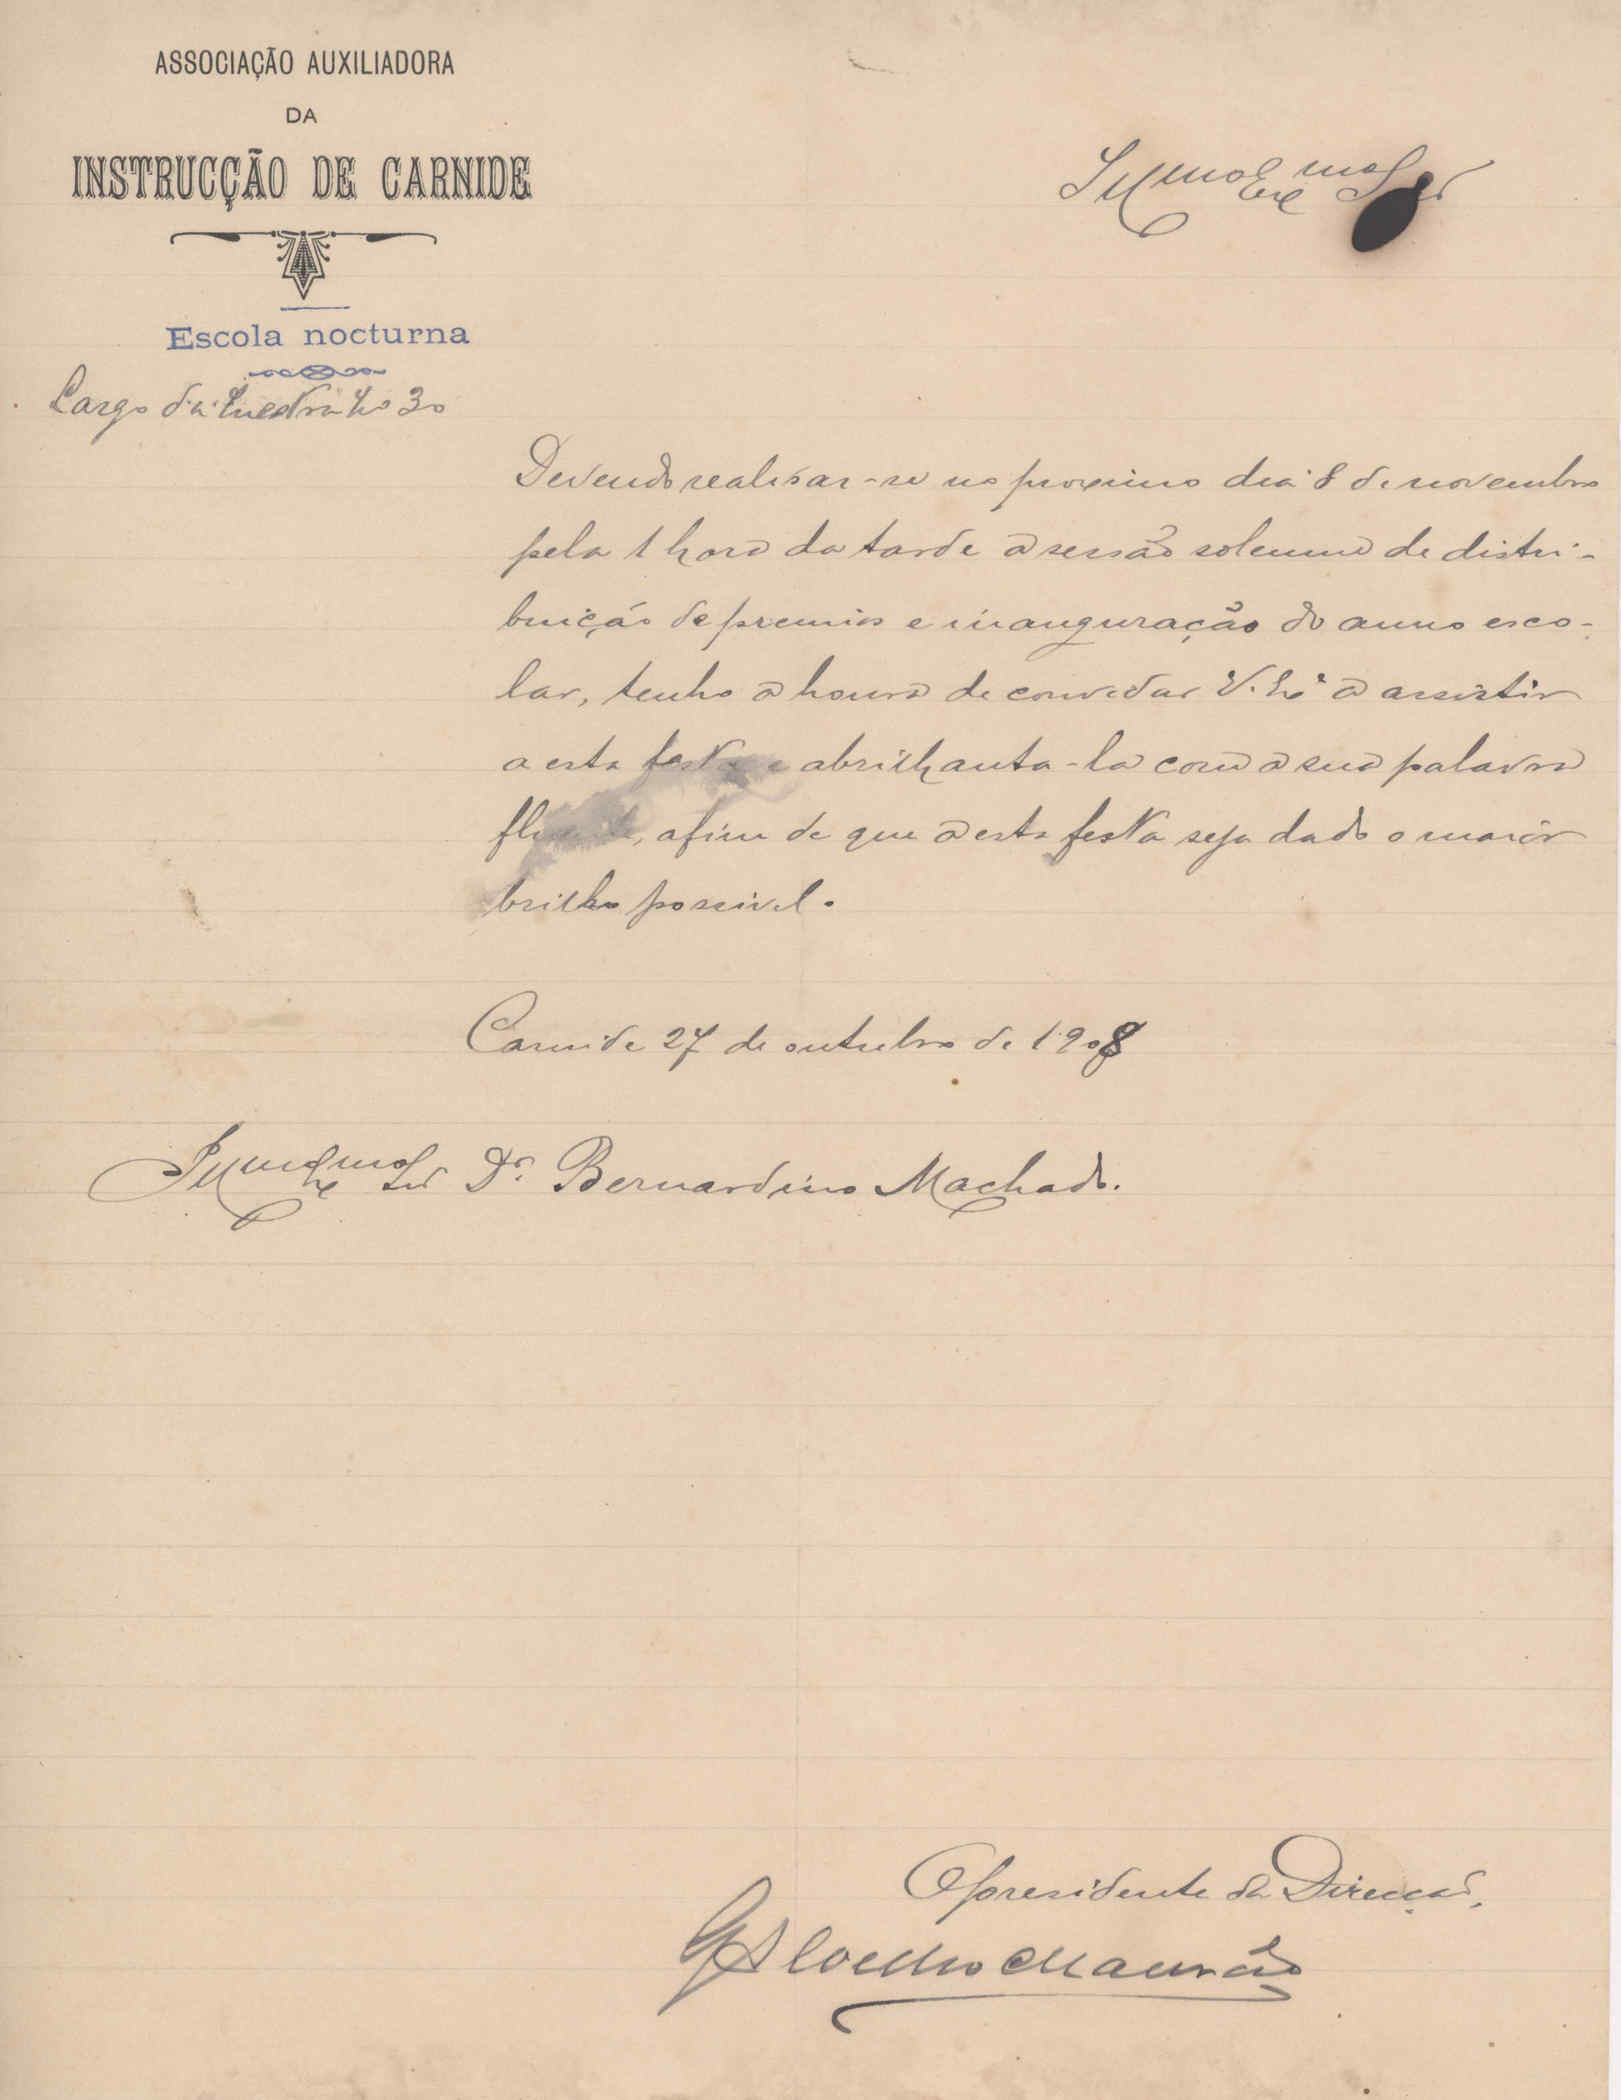 ASSOCIAÇÃO AUXILIADORA
DA
INSTRUCÇÃO DE CARNIDE
Illmo Exmo Snr
Escola nocturna
Largo da Luz No 30
Devendo realisar-se no proximo dia 8 de novembro
pela 1 hora da tarde a sessão solemne de distri-
buição de premios e inauguração do anno esco-
lar, tenho a honra de convidar V. Exª a assistir
a esta festa e abrilhanta-la com a sua palavra
fluente, afim de que a esta festa seja dado o maior
brilho possivel.
Carnide 27 de outubro de 1908
Illmo Exmo Snr Dr. Bernardino Machado.
O presidente da Direcção,
Coelho